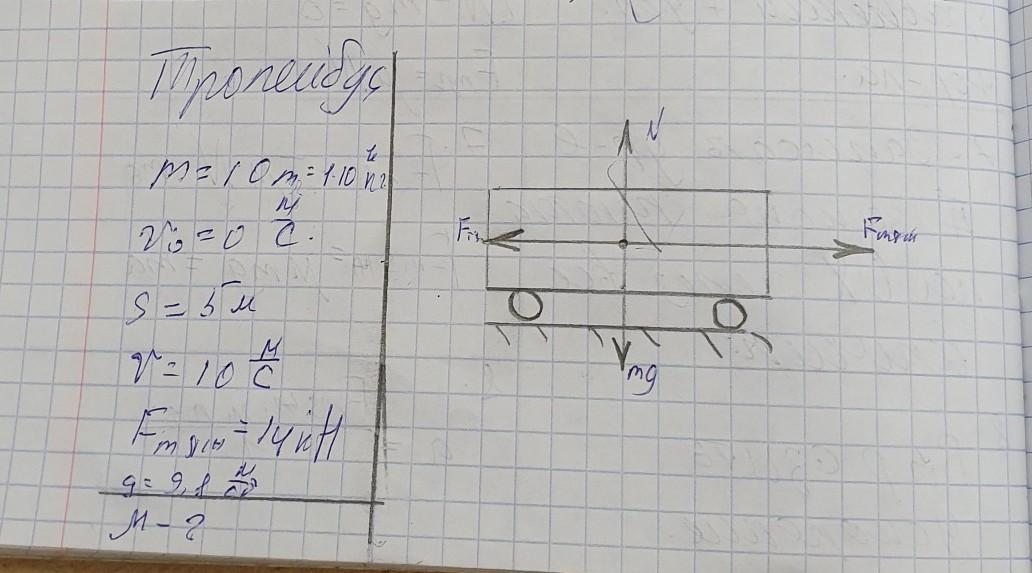 Тролейбус
m = 10 т = 1·10⁴ кг
v₀ = 0 м/с.
S = 5 м
v = 10 м/с
Fтяги = 14 кН
g = 9,8 м/с²
M - ?
N
Fт
Fтяги
mg